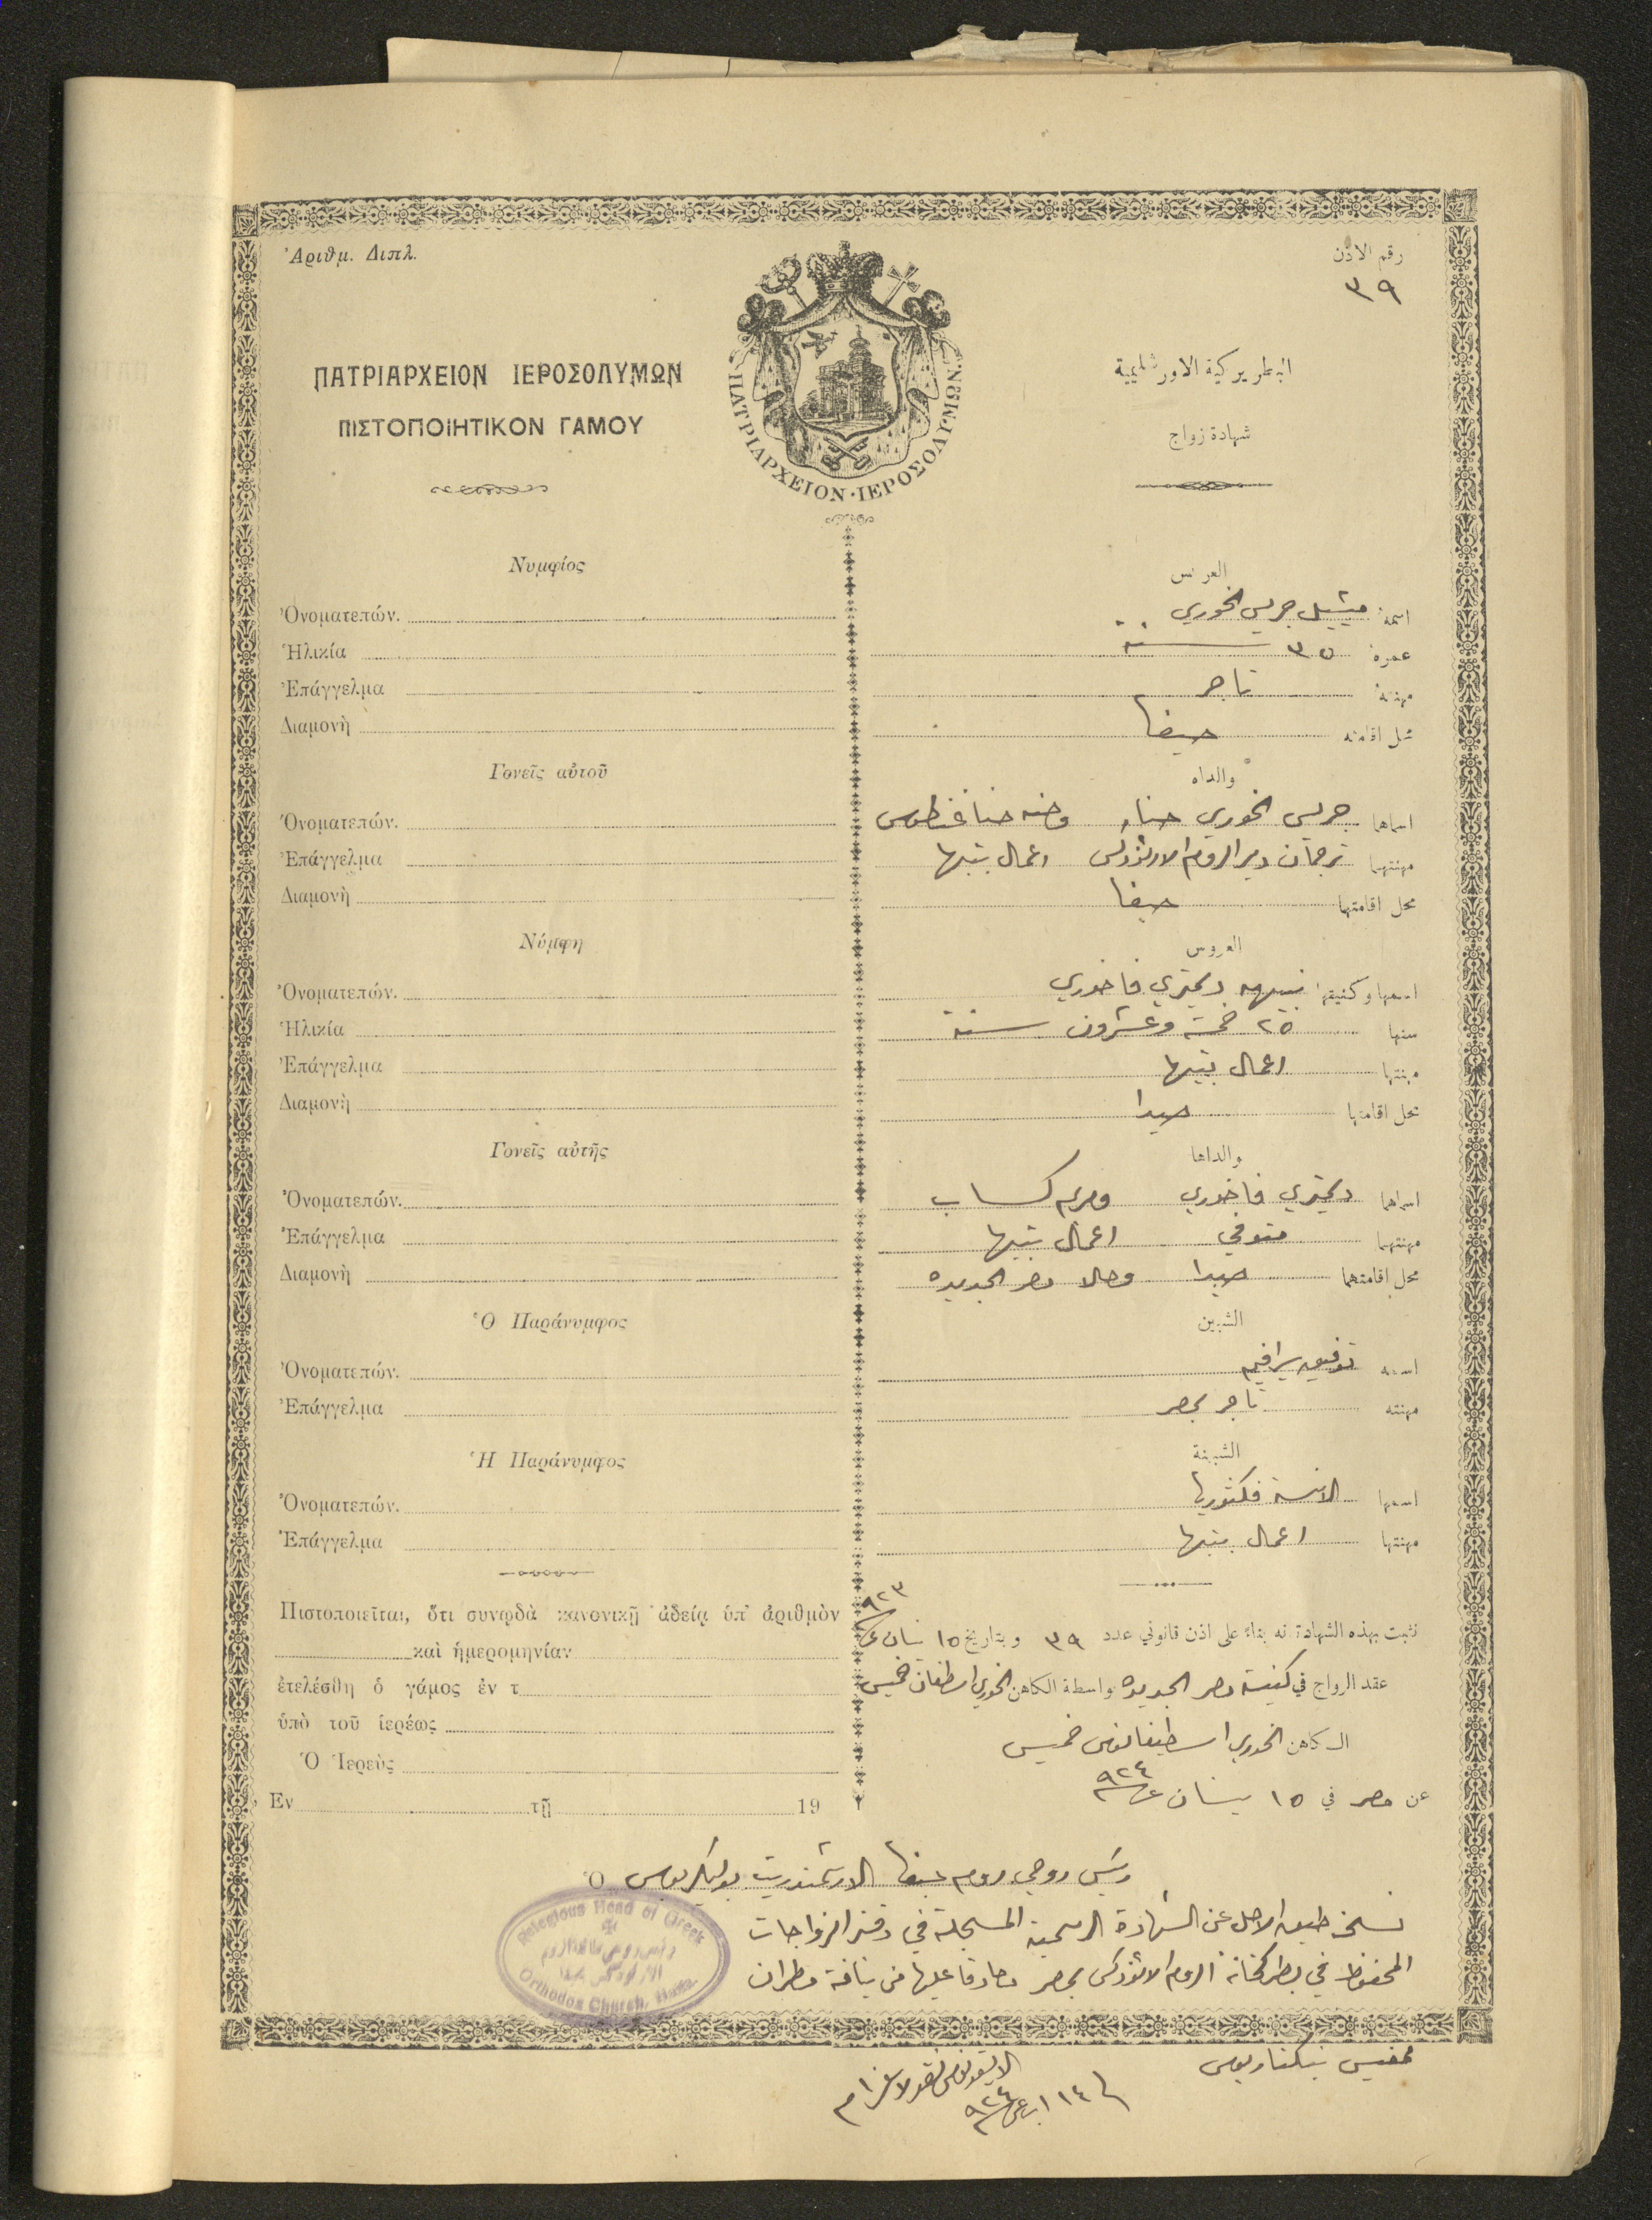 Ἀριθμ. Διπλ.
رقم الاذن
٣٩
ΠΑΤΡΙΑΡΧΕΙΟΝ ΙΕΡΟΣΟΛΥΜΩΝ
ΠΙΣΤΟΠΟΙΗΤΙΚΟΝ ΓΑΜΟΥ
ΠΑΤΡΙΑΡΧΕΙΟΝ·ΙΕΡΟΣΟΛΥΜΩΝ.
البطريركية الاورشليمية
شهادة زواج
Νυμφίος
Ὀνοματεπών.
Ἡλικία
Ἐπάγγελμα
Διαμονὴ
Γονεῖς αὐτοῦ
Ὀνοματεπών.
Ἐπάγγελμα
Διαμονὴ
Νύμφη
Ὀνοματεπών.
Ἡλικία
Ἐπάγγελμα
Διαμονὴ
Γονεῖς αὐτῆς
Ὀνοματεπών.
Ἐπάγγελμα
Διαμονὴ
Ὁ Παράνυμφος
Ὀνοματεπών.
Ἐπάγγελμα
Ἡ Παράνυμφος
Ὀνοματεπών.
Ἐπάγγελμα
Πιστοποιεῖται, ὅτι συνῳδὰ κανονικῇ ἀδείᾳ ὑπ' ἀριθμὸν
καὶ ἡμερομηνίαν
ἐτελέσθη ὁ γάμος ἐν τ
ὑπὸ τοῦ ἱερέως
Ὁ Ἱερεὺς
Ἐν τῇ 19
العريس
اسمه ميشيل جريس الخوري
عمره ٣٥ سنة
مهنته تاجر
محل اقامته حيفا
والداه
اسماهما جريس الخوري حنا وحنه حنا غنطوس
مهنتهما ترجمان دير الروم الارثوذكس اعمال بيتها
محل اقامتهما حيفا
العروس
اسمها وكنيتها نبيهه ديمتري فاخوري
سنها ٢٥ خمسة وعشرون سنة
مهنتها اعمال بيتها
محل اقامتها صيدا
والداها
اسماهما ديمتري فاخوري ومريم كساب
مهنتهما متوفي اعمال بيتها
محل اقامتهما صيدا وحالا مصر الجديده
الشبين
اسمه توفيق سرافيم
مهنته تاجر بمصر
الشبينة
اسمها الانسة فكتوريا
مهنتها اعمال بيتها
نثبت بهذه الشهادة انه بناء على اذن قانوني عدد ٣٩ وبتاريخ ١٥ نيسان ٩٢٣
عقد الزواج في كنيسة مصر الجديده بواسطة الكاهن الخوري اسطفان خميس
الكاهن الخوري اسطيفانوس خميس
عن مصر في ١٥ نيسان ٩٢٤
Ὁ رئيس روحي روم حيفا الارشمندريت بوليكربوس
نسخة طبق الاصل عن الشهادة الرسمية المسجلة في دفتر الزواجات
المحفوظ في بطركخانة الروم الارثوذكس بمصر مصادقا عليها من نيافة مطران
ممفيس نيكتاريوس
Religious Head of Greek
Orthodox Church, Haifa
٩٢٤